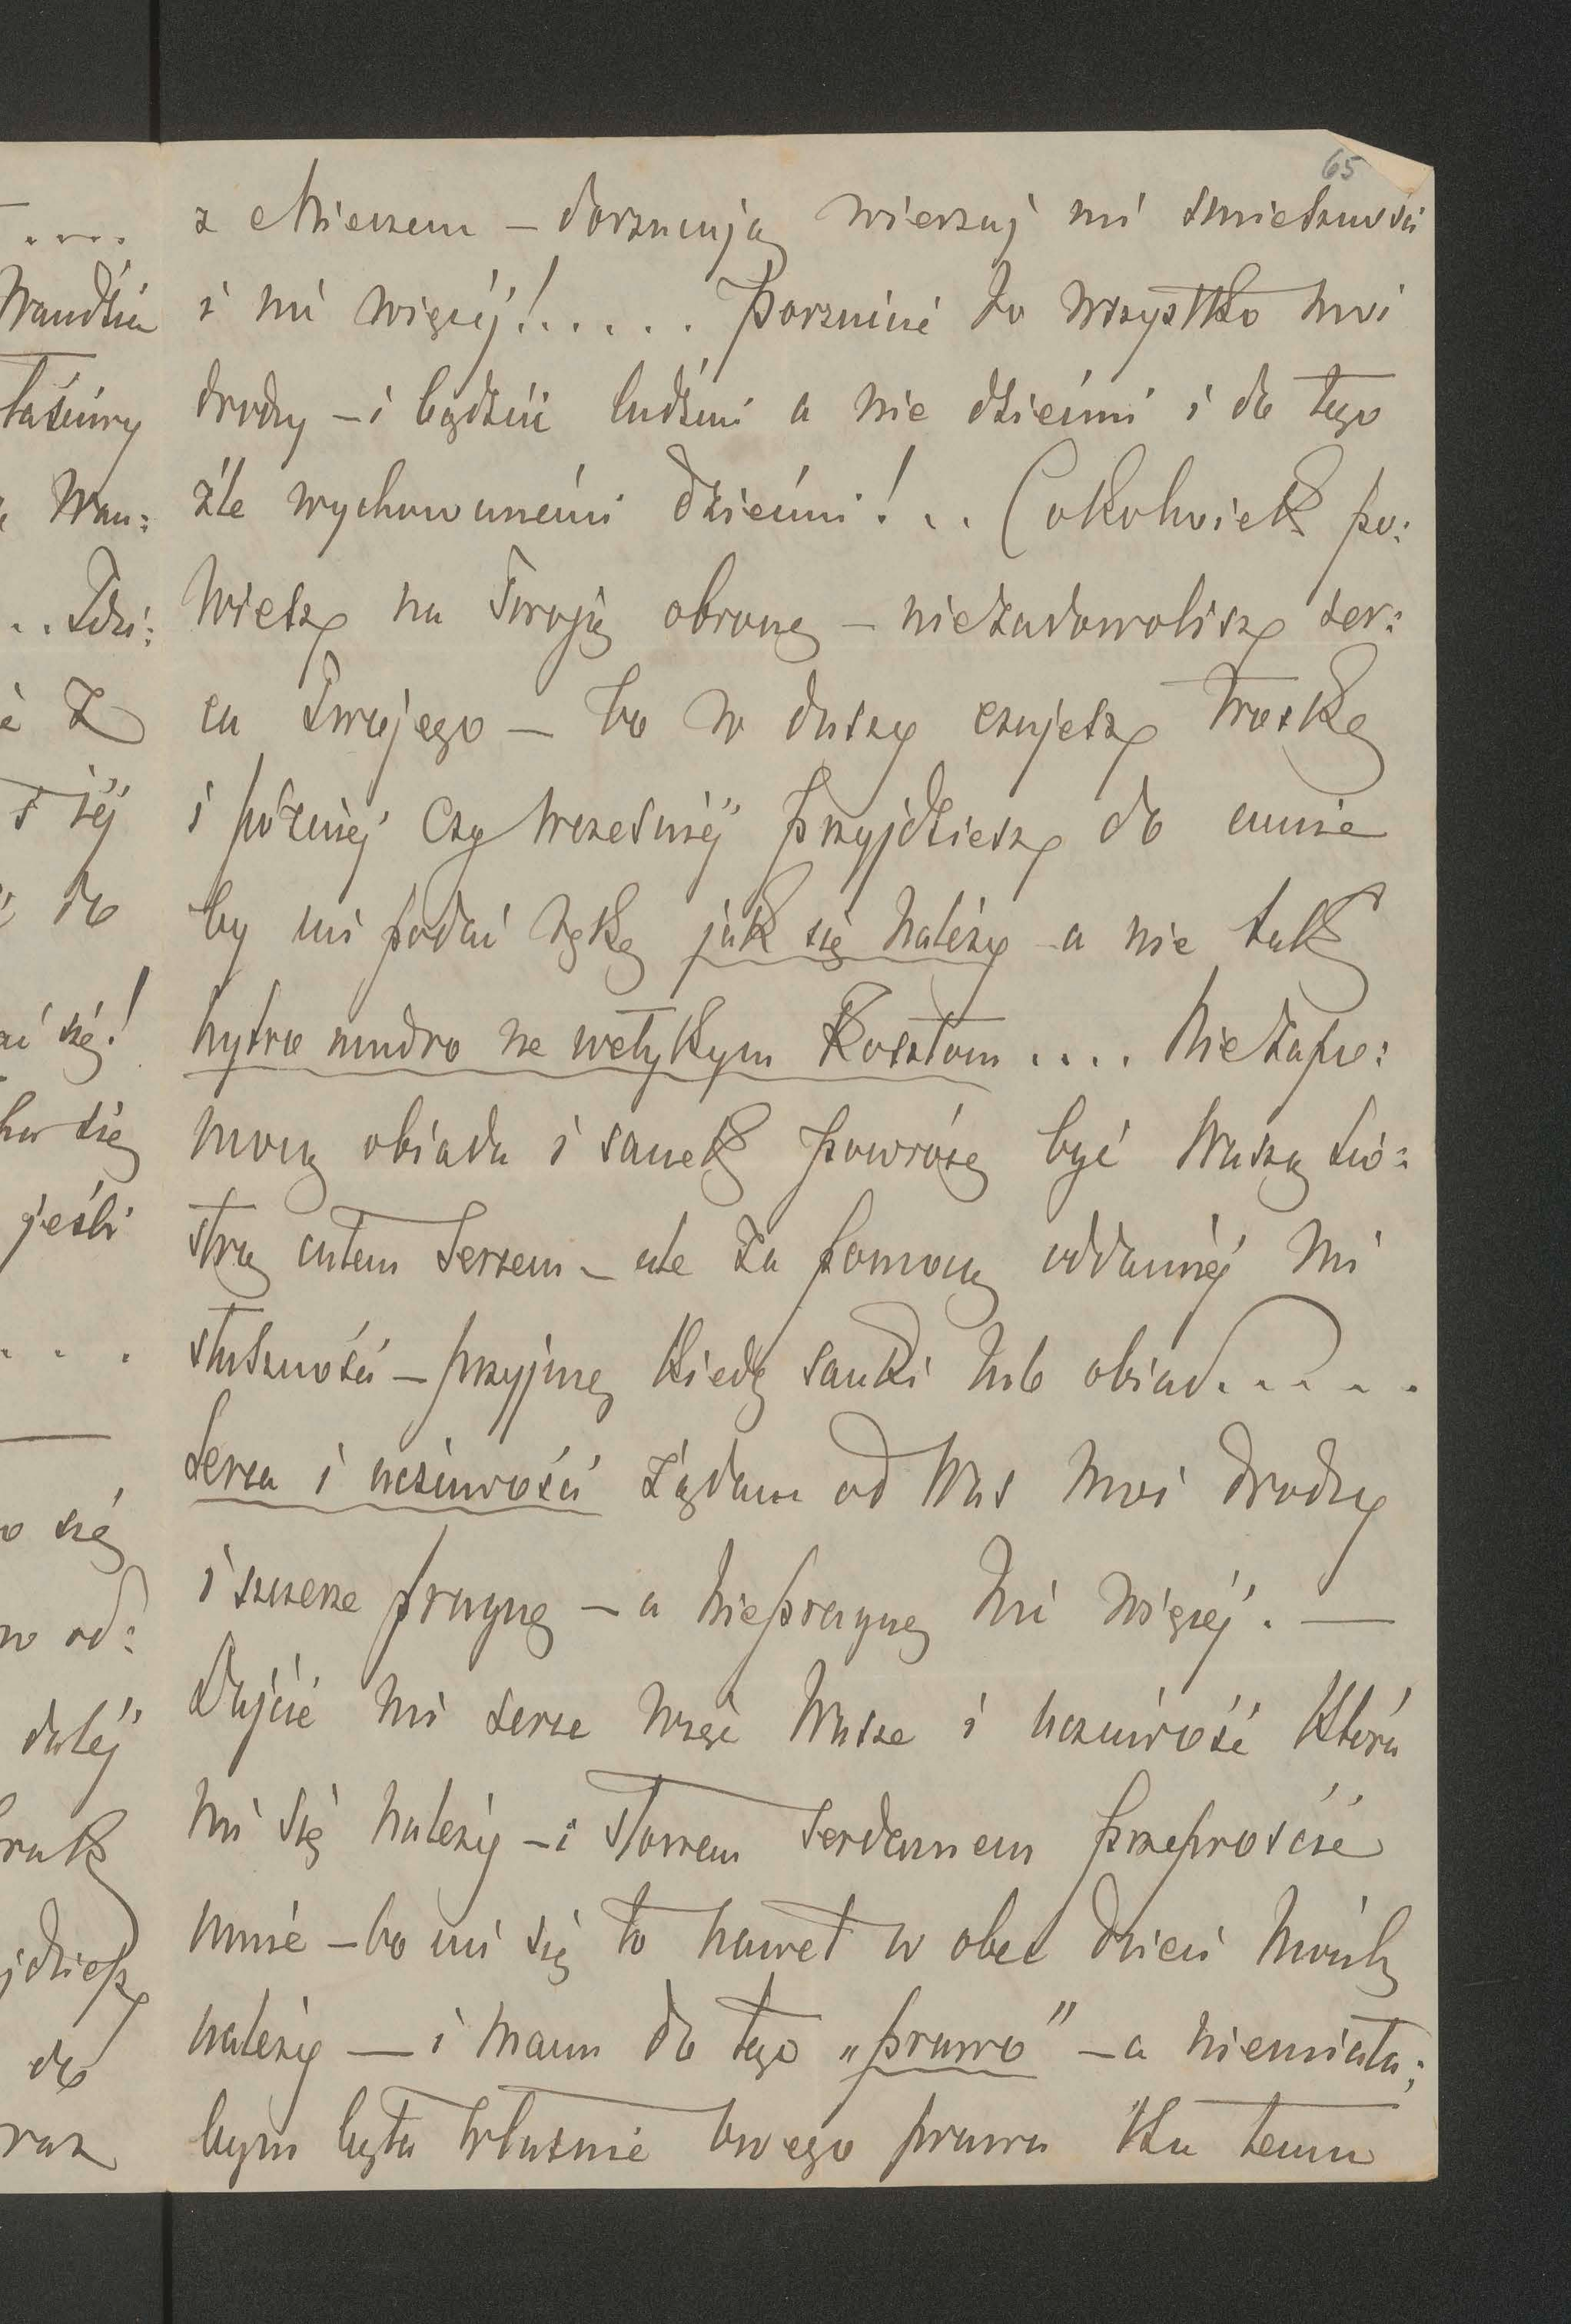 65
z Mieczem – dorzucują wierzaj mi śmieszności
i nic więcej! . . . . . Porzućcie to wszystko moi
drodzy – i bądźcie ludźmi a nie dziećmi i do tego
źle wychowanemi dziećmi! . . Cokolwiek po:
wiesz na Twoję obronę – niezadowolisz ser:
ca Twojego – bo w duszy czujesz troskę
i później czy wcześniéj przyjdziesz do mnie
by mi podać rękę jak się należy a nie tak
hytro mudro ne wełykym kosztom . . . . Nie za po:
mocą obiadu i sanek powrócę być Waszą sio:
strą całem sercem – ale za pomocą oddanéj mi
słuszności – przyjmę kiedy sanki lub obiad. . . . .
Serca i uczciwości żądam od Was moi drodzy
i szczerze pragnę – a niepragnę nic więcéj. —
Dajcie mi serce więc Wasze i uczciwość która
mi się należy – i słowem serdecznem przeproście
mnie – bo mi się to nawet w obec dzieci moich
należy — i mam do tego „prawo” – a niemiała:
bym była właśnie owego prawa ku temu
. . . .
Wan:
z
do
się!
się
jeśli
. . .
się
od:
daléj
do
raz